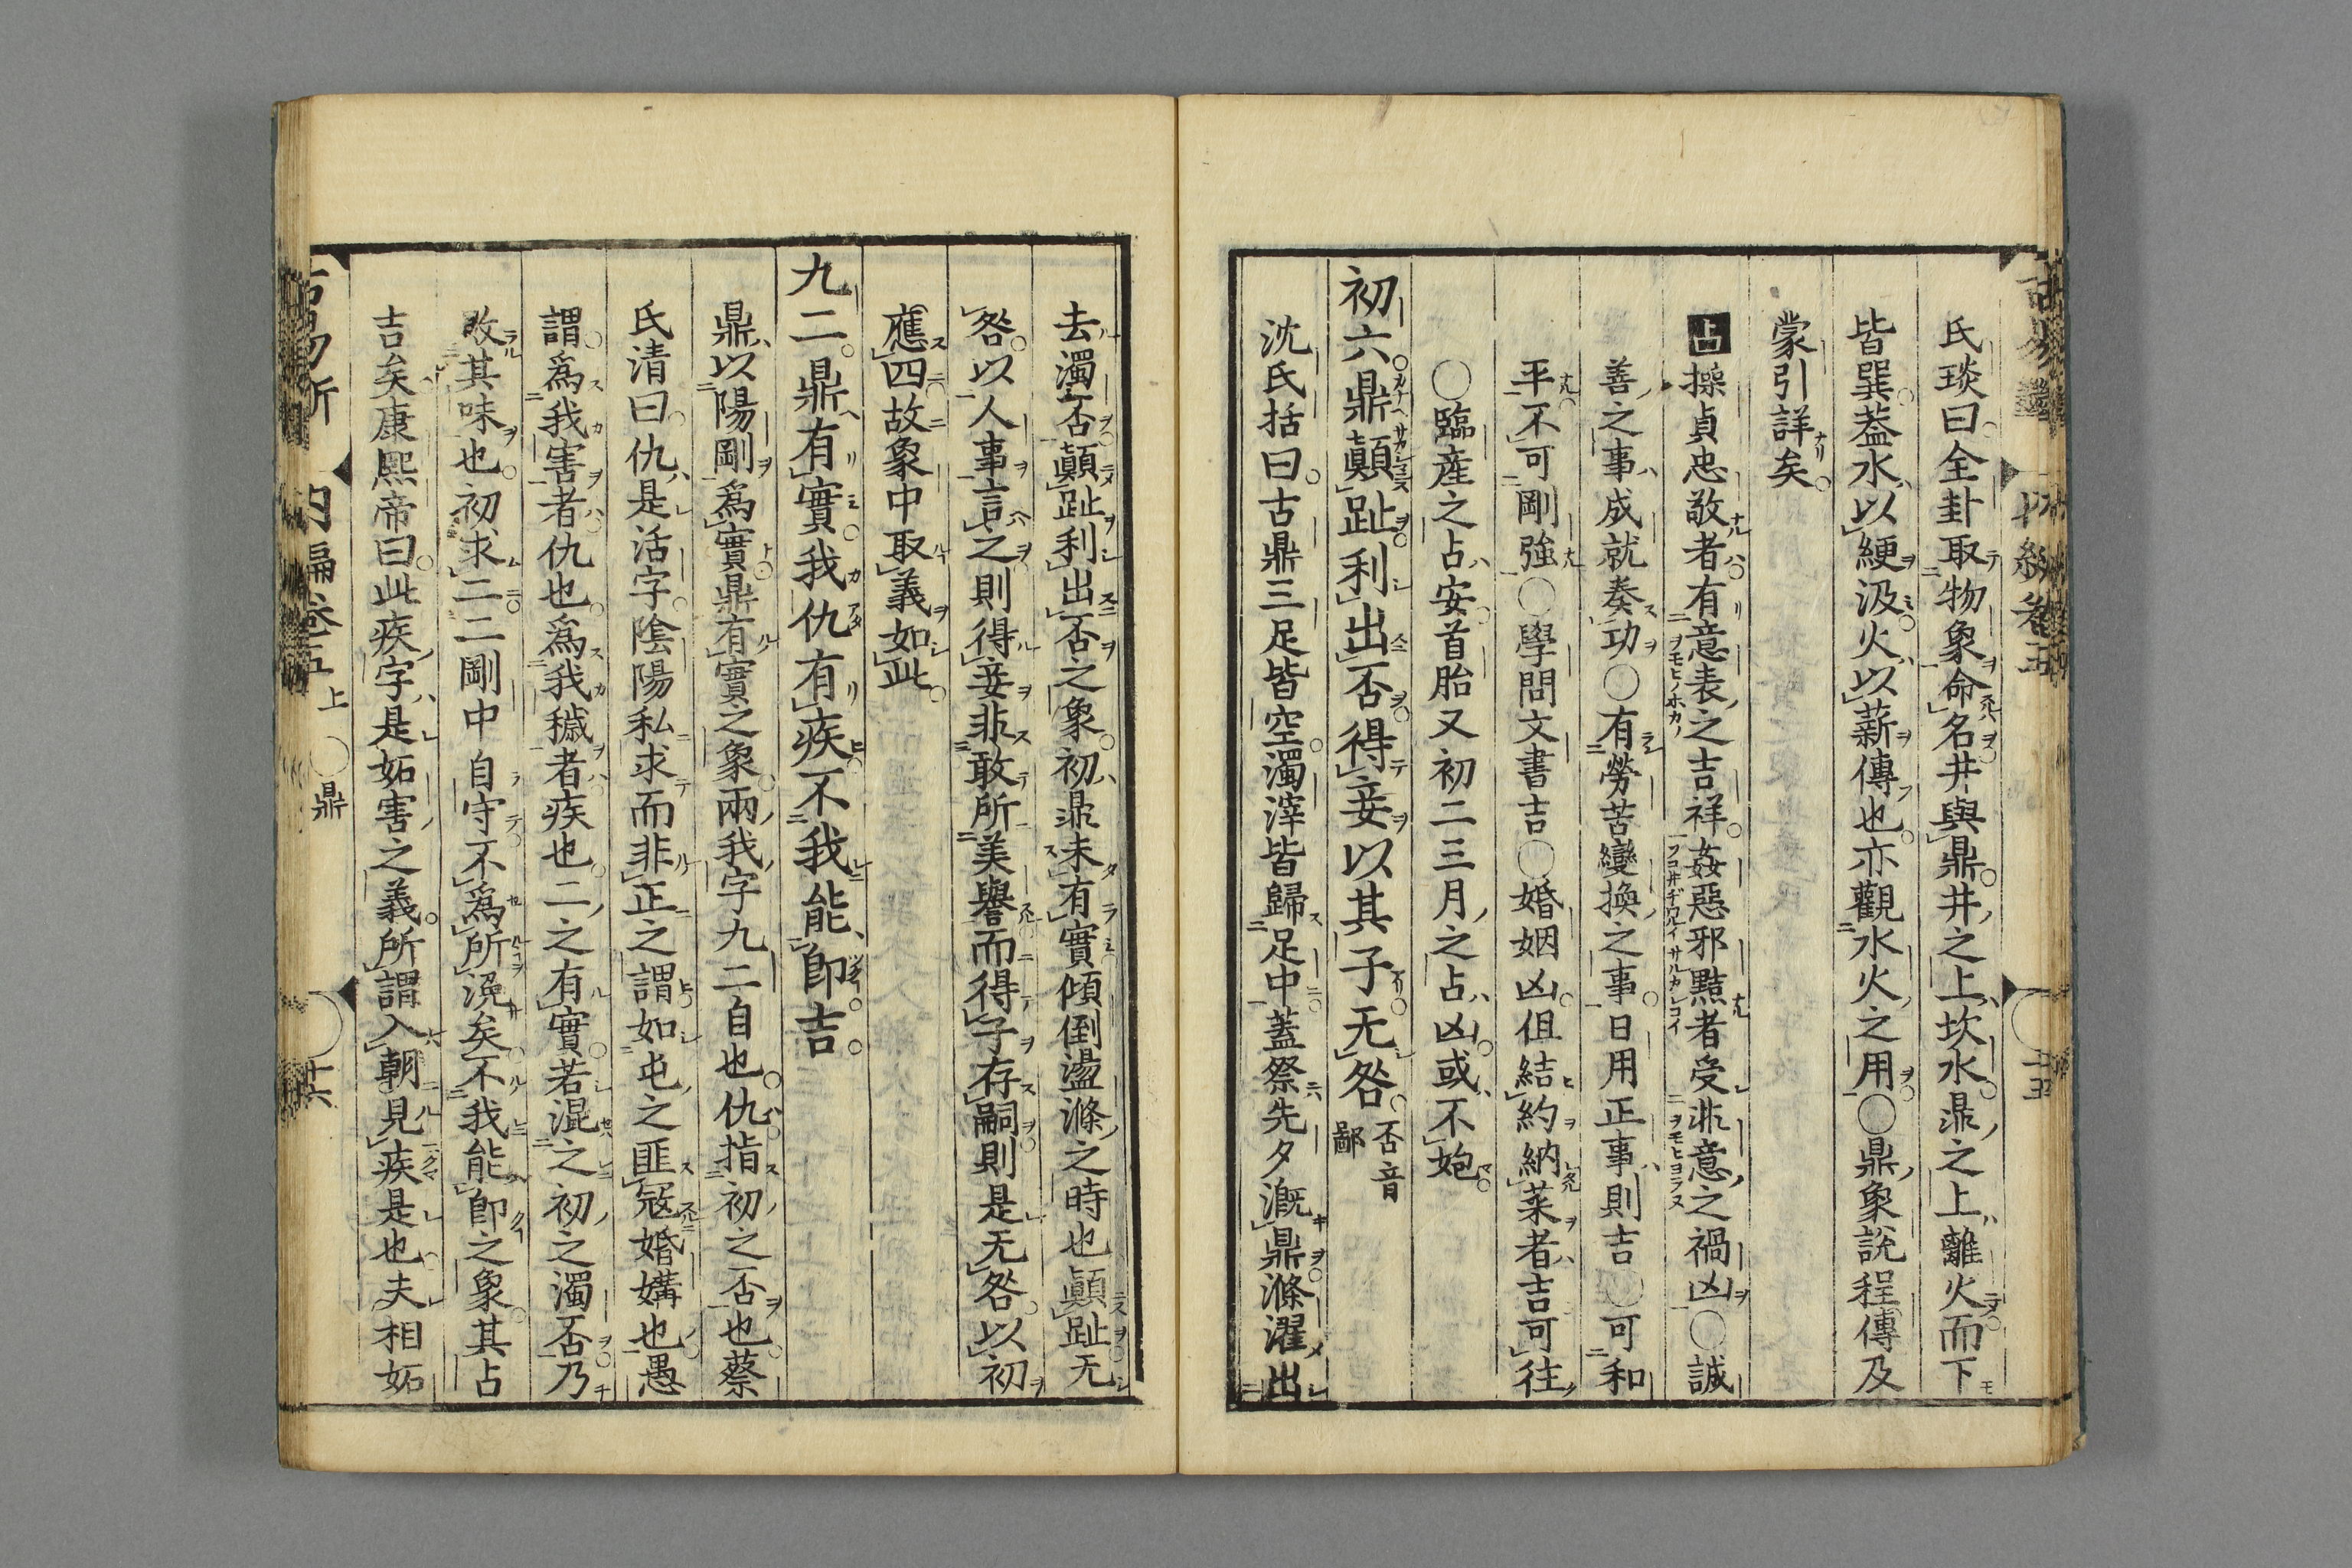 氏琰曰全卦取物象命名井與鼎井之上坎水鼎之上離火而下
皆巽蓋水以綆汲火以薪傳也亦觀水火之用○鼎象説程傳及
蒙引詳矣
占操貞忠敬者有意表之吉祥姦惡邪黠者受非意之禍凶○誠
善之事成就奏功○有勞苦變換之事日用正事則吉○可和
平不可剛強○學問文書吉○婚姻凶但結約納菜者吉可往
○臨産之占安首胎又初二三月之占凶或不娩
初六鼎顚趾利出否得妾以其子无咎否音鄙
沈氏括曰古鼎三足皆空濁滓皆歸足中蓋祭先夕漑鼎滌濯出
去濁否顚趾利出否之象初鼎未有實傾倒盪滌之時也顚趾无
咎以人事言之則得妾非敢所美譽而得子存嗣則是无咎以初
應四故象中取義如此
九二鼎有實我仇有疾不我能卽吉
鼎以陽剛爲實鼎有實之象兩我字九二自也仇指初之否也蔡
氏清曰仇是活字陰陽私求而非正之謂如屯之匪寇婚媾也愚
謂爲我害者仇也爲我穢者疾也二之有實若混之初之濁否乃
敗其味也初求二二剛中自守不爲所浼矣不我能卽之象其占
吉矣康熙帝曰此疾字是妬害之義所謂入朝見疾是也夫相妬
内編卷五上 ○鼎
十六